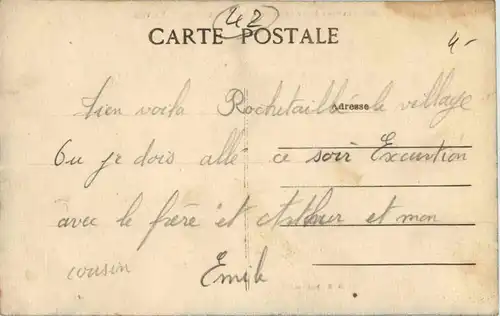 42
CARTE POSTALE
4-
Adresse
Tien voila Rochetaillée le village
Ou je dois allé ce soir Excurtion
avec le frère et Arthur et mon
cousin Emile